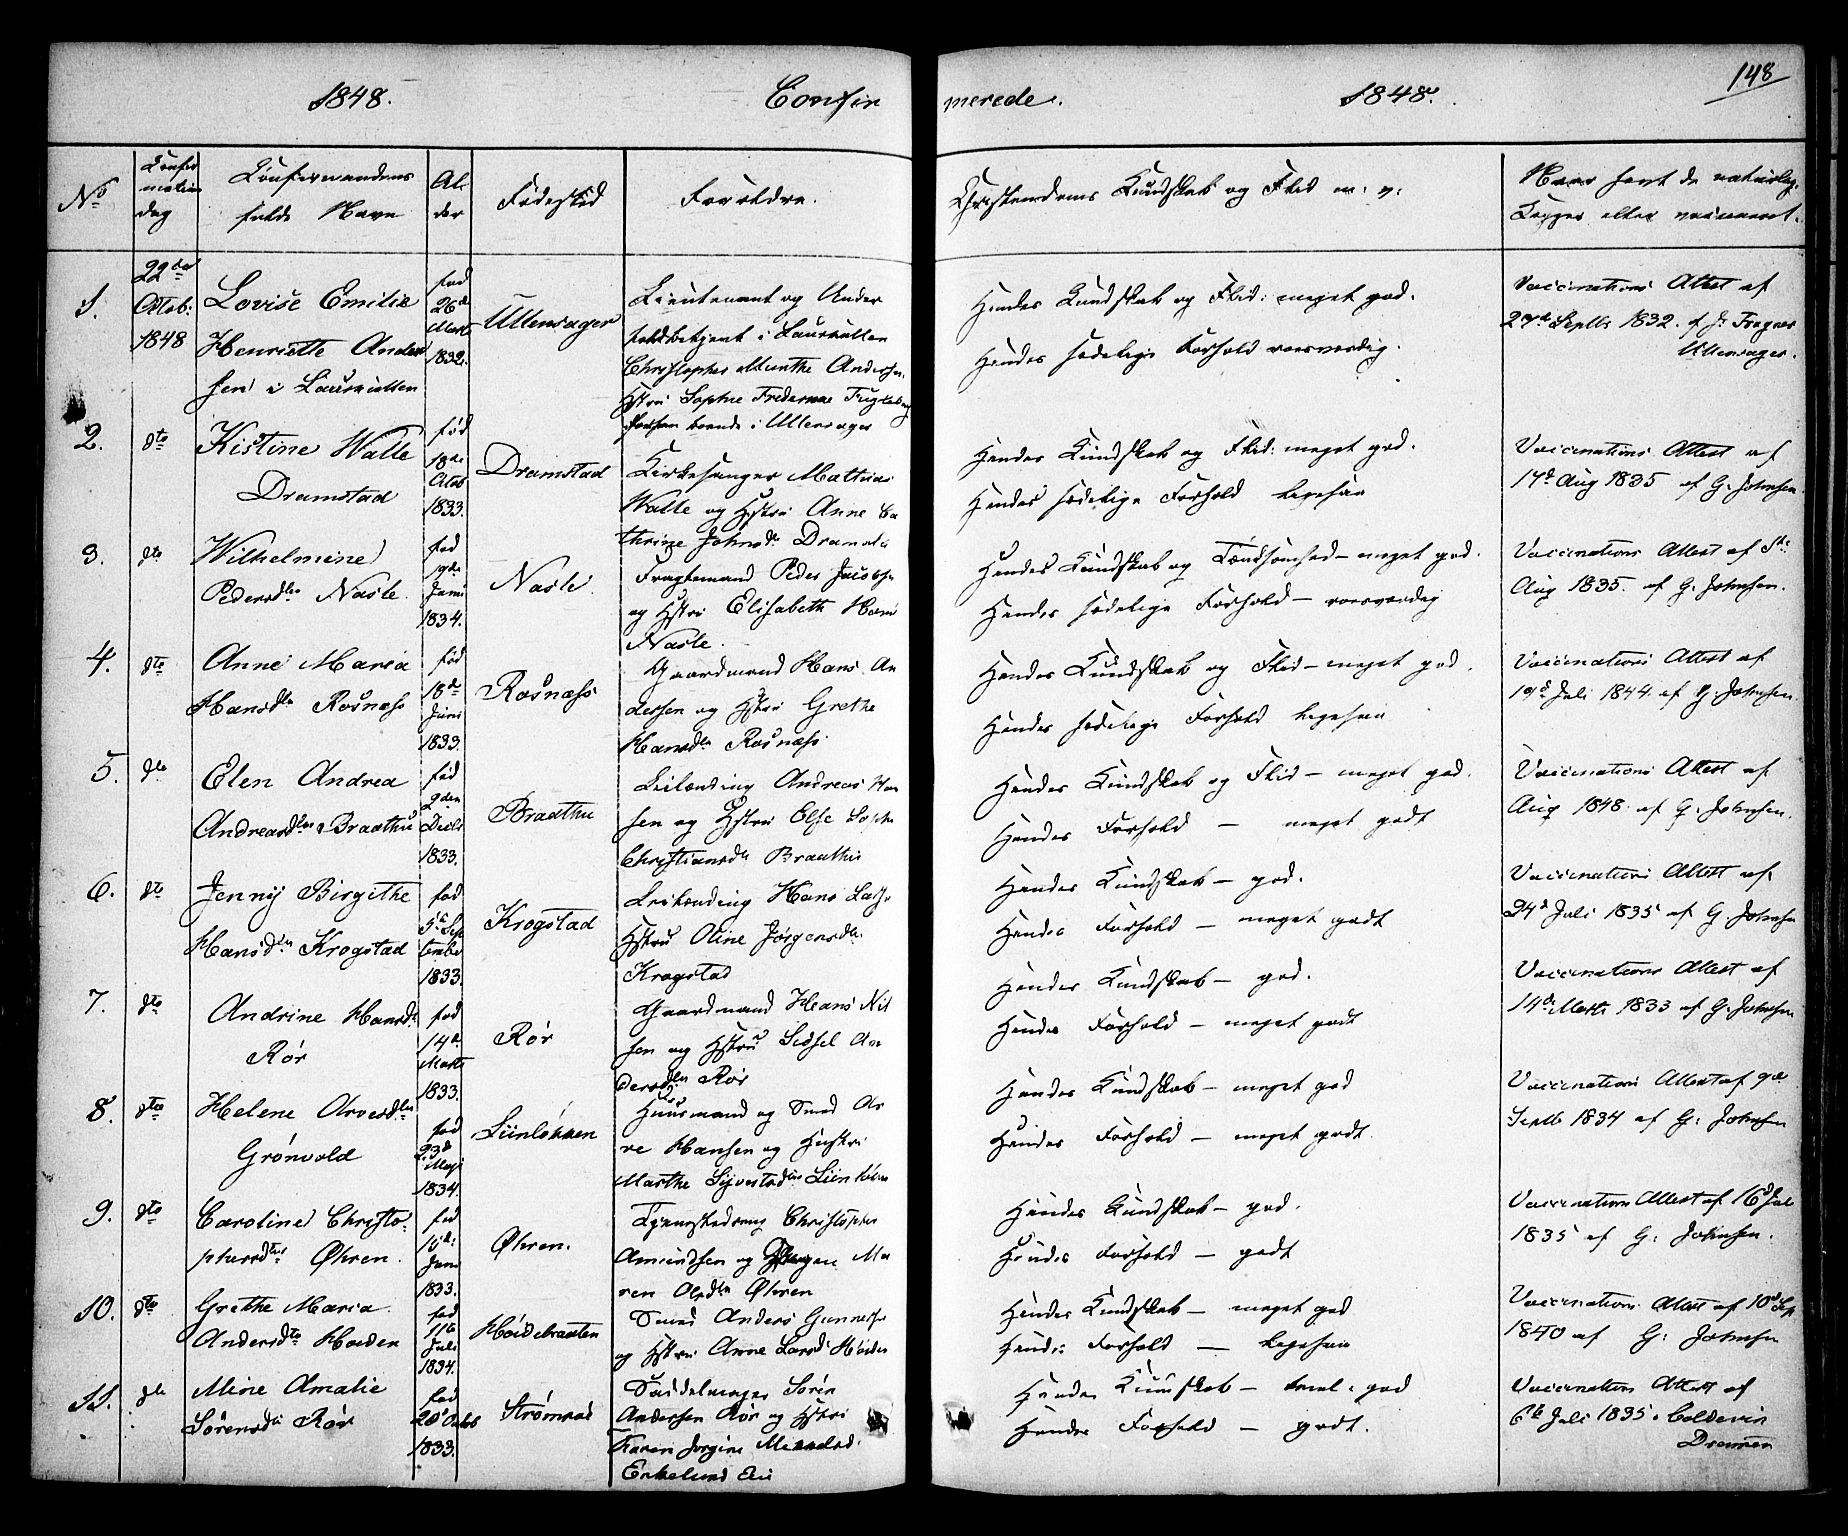 148
1848. Confir merede. 1848.
No
Confir
mations
dag
Confirmandens
fulde Navn
Al-
der
Fødested
Forældre.
Christendoms Kundskab og Flid m: v:
Naar havt de naturlige
Kopper eller vaccineret.
1.
22de
Octob:
1848
Lovise Emilie
Henriette Ander
sen i Laurvallen
fød
26de
Marts
1832.
Ullensager
Lieutenant og Under
toldbetjent i
Christopher Munthe Andersen,
Hstru Sophie
boende i Ullensager
Hendes Kundskab og Flid: meget god.
Hendes sædelige Forhold roesværdig.
Vaccinations Attest af
27de Septb 1832. af
Ullensager.
2.
dto
Kistine Walle
Dramstad
fød
18de
Octb
1833.
Dramstad
Kirkesanger Mathias
Walle og Hstru Anne Ca
thrine Johnsdr Dramstad
Hendes Kundskab og Flid: meget god.
Hendes sædelige Forhold
Vaccinations Attest af
17de Aug 1835 af G. Johnsen.
3.
dto
Wilhelmine
Pedersdtr Nasle.
fød
19de
Juni
1834.
Nasle.
Fragtemand Peder Jacobsen
og Hstru Elisabeth
Nasle.
Hendes Kundskab og meget god.
Hendes sædelige Forhold – roesværdig
Vaccinations Attest af
Aug 1835. af G. Johnsen.
4.
dto
Anne Maria
Hansdtr Rosnæss
fød
18de
Juni
1833.
Rosnæss
Gaardmand Hans An
dersen og Hstru Grethe
Hansdtr Rosnæss
Hendes Kundskab og Flid – meget god.
Hendes sædelige Forhold
Vaccinations Attest af
19de Juli 1844 af G. Johnsen.
5.
dto
Elen Andrea
Andreasdtr Braathu
fød
2den
Decb
1833.
Braathu
Leilænding Andreas Han
sen og Hstru Else Sophie
Christiansdtr Braathu
Hendes Kundskab og Flid – meget god.
Hendes Forhold – meget godt
Vaccinations Attest af
Aug 1848. af G. Johnsen.
6.
dto
Jenny Birgithe
Hansdtr Krogstad
fød
5te Sep
tember
1833.
Krogstad
Leilænding Hans
Hstru Oline Jørgensdtr
Krogstad
Hendes Kundskab – god.
Hendes Forhold – meget godt
Vaccinations Attest af
24de Juli 1835 af G. Johnsen
7.
dto
Andrine Hansdtr
Rör
fød
14de
Marts
1833.
Rör
Gaardmand Hans Nil
sen og Hstru Sidsel An
dersdtr Rör
Hendes Kundskab – god.
Hendes Forhold – meget godt
Vaccinations Attest af
14de Marts 1833 af G. Johnsen
8.
dto
Helene Arvesdtr
Grönvold
fød
23de
Maj
1834.
Liinlökken
Huusmand og Smed Ar
ve Hansen og Hustru
Marthe Syverstadtr Liinlökken
Hendes Kundskab – meget god
Hendes Forhold – meget godt.
Vaccinations Attest af 9de
Septb 1834 af G. Johnsen
9.
dto
Caroline Christo-
phersdtr Øhren.
fød
10de
Juni
1833.
Øhren.
Christopher
Amundsen og Ma
ren Olsdtr Øhren
Hendes Kundskab – god.
Hendes Forhold – godt
Vaccinations Attest af 16de Jul
1835 af G. Johnsen.
10.
dto
Grethe Maria
Andersdtr Høiden
fød
11te
Juli
1834.
Høidebraaten
Smed Anders Gunnersen
og Hstru Anne Larsdr Høiden
Hendes Kundskab – meget god
Hendes Forhold –
Vaccinations Attest af 10de Sep
1840 af G. Johnsen
11.
dto
Mine Amalie
Sörensdtr Rör
fød
20de Octob
1833.
Strømsøe
Saddelmager Sören
Andersen Rör og Hstru
Karen Jorgine
Hendes Kundskab – god
Hendes Forhold – godt.
Vaccinations Attest af
6te Juli 1835. Coldevin
Drammen